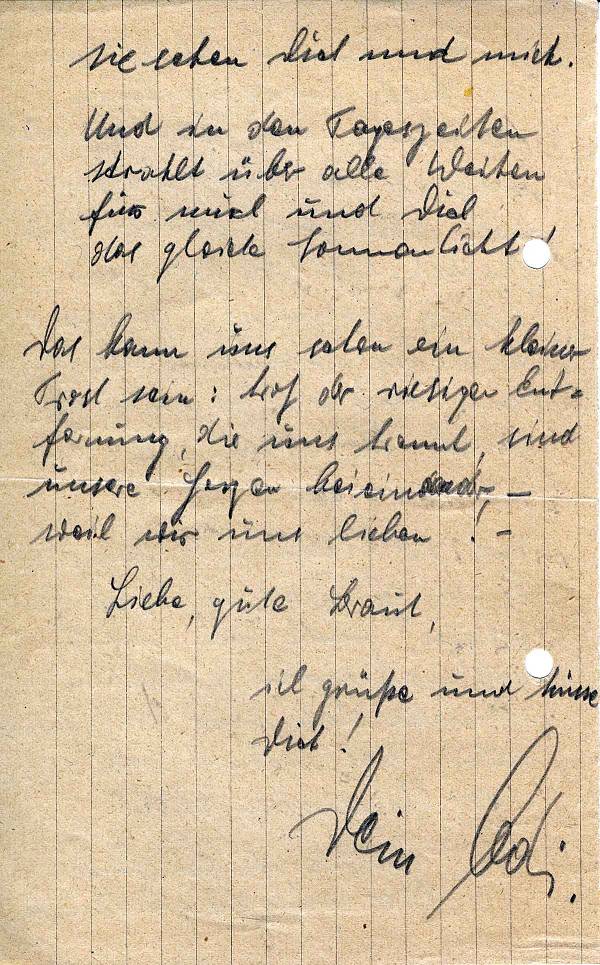 sie sehen Dich und mich.
Und in den Tageszeiten
strahlt über alle Weiten
für mich und Dich
das gleiche Sonnenlicht!
Das kann uns schon ein kleiner
Trost sein: trotz der riesigen Ent-
fernung, die uns trennt, sind
unsere Herzen beieinander, –
weil wir uns lieben! –
Liebe, gute Braut,
ich grüße und küsse
Dich!
Dein Edi.